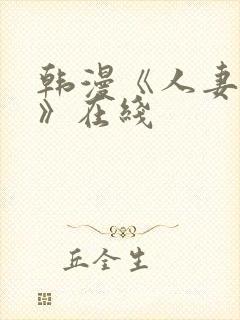 韩漫《人妻
》在线
丘全生